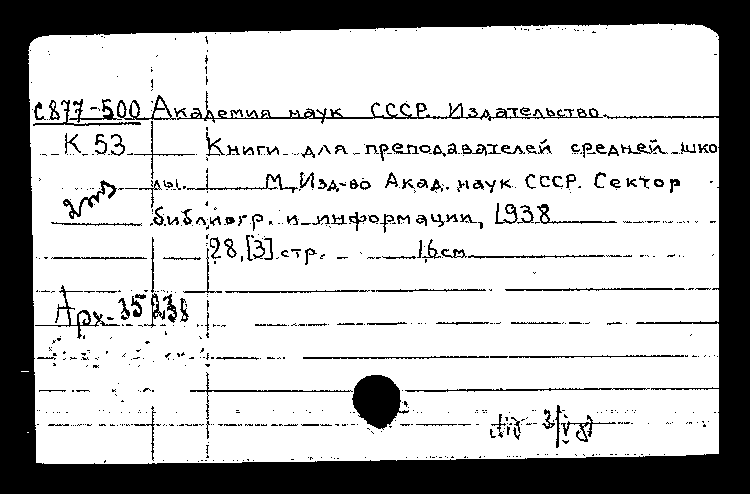 С877-500 Академия наук СССР. Издательство.
К 53 Книги для преподавателей средней шко
лы. М, Изд-во Акад. наук СССР. Сектор
библиогр. и информации, 1938
28, [3] стр. 16см
Арх-35238